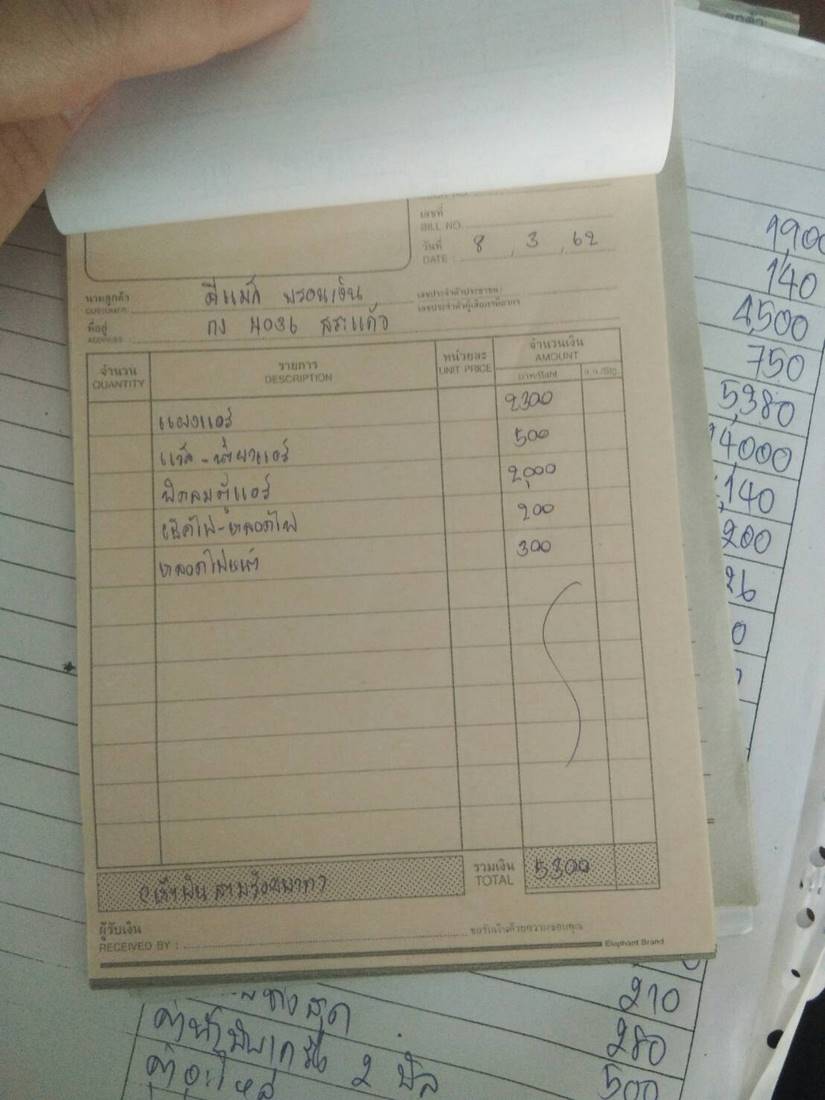 เลขที่
BILL NO.
วันที่ 8 , 3 , 62
DATE :
นามลูกค้า ดีแม็ก พรอนเงิน เลขประจำตัวประชาชน/
CUSTOMER เลขประจำตัวผู้เสียภาษีอากร
ที่อยู่ กง 4036 สระแก้ว
ADDRESS
จำนวน รายการ หน่วยละ จำนวนเงิน
QUANTITY DESCRIPTION UNIT PRICE AMOUNT
แผงแอร์ 2300
แวล์ - น้ำยาแอร์ 500
พัดลมตู้แอร์ 2,000
เช็คไฟ-หลอดไฟ 200
หลอดไฟหน้า 300
(ห้าพันสามร้อยบาท) รวมเงิน 5300
TOTAL
ผู้รับเงิน ขอรับเงินด้วยความขอบคุณ
RECEIVED BY : Elephant Brand
1,900
140
4,500
750
5,380
4,000
,140
200
26
0
210
280
ค่า 2 500